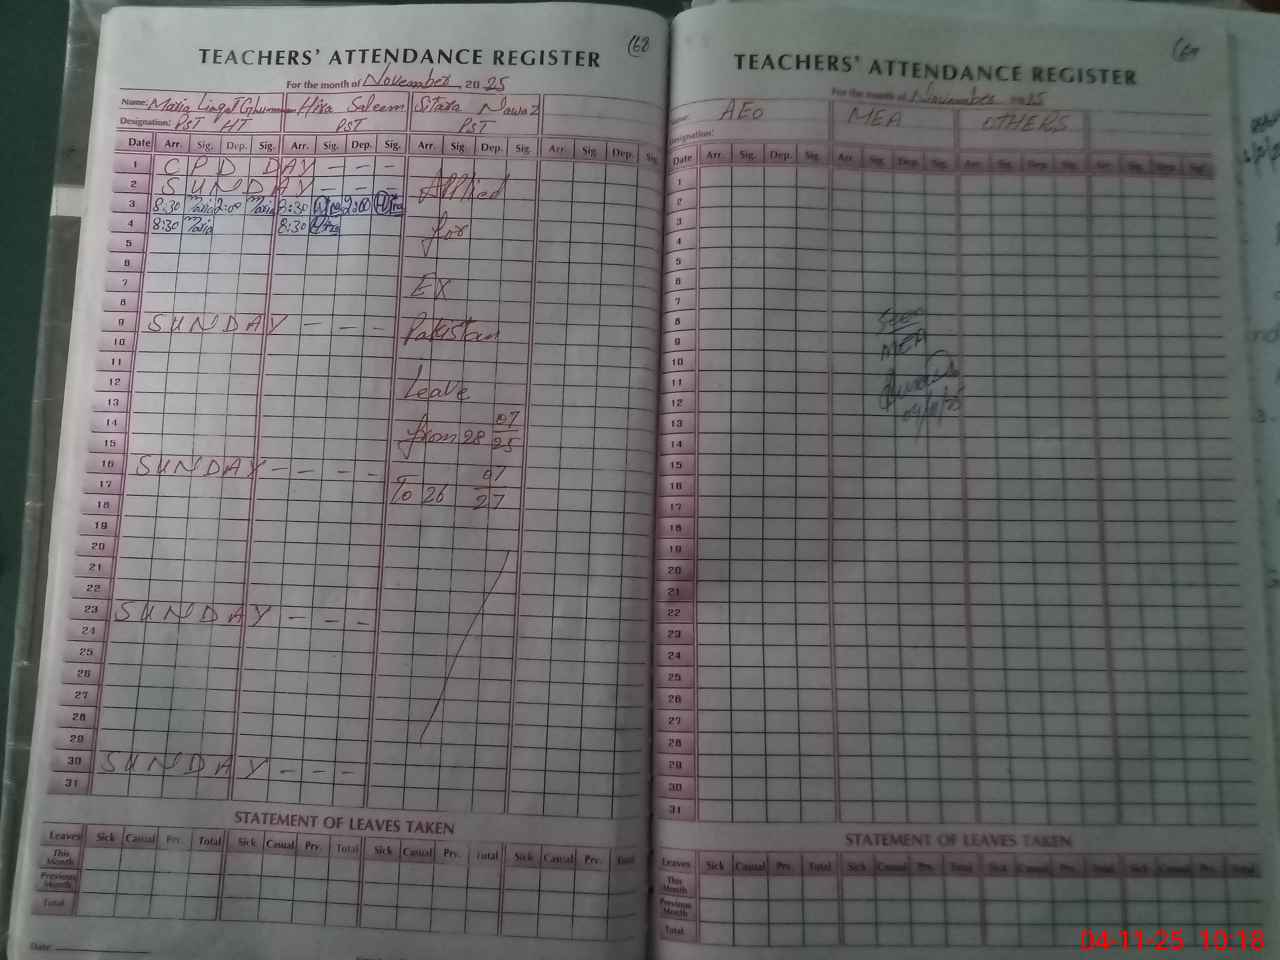 (68
TEACHERS' ATTENDANCE REGISTER
For the month of November 20 25
Name: Maria Liaqat Ghumman Hira Saleem Sitara Nawaz
Designation: PST HT PST PST
Date Arr. Sig. Dep. Sig. Arr. Sig. Dep. Sig. Arr. Sig. Dep. Sig. Arr. Sig. Dep. Sig.
1 CPD DAY - - -
2 SUNDAY - - - Applied
3 8:30 Maria 2:00 Maria 8:30 Hira 2:00 Hira
4 8:30 Maria 8:30 Hira for
5
6
7 EX
8
9 SUNDAY - - - Pakistan
10
11
12 Leave
13
14 07
15 from 28 25
16 SUNDAY - - - -
17 07
18 To 26 27
19
20
21
22
23 SUNDAY - - - -
24
25
26
27
28
29
30 SUNDAY - - -
31
STATEMENT OF LEAVES TAKEN
Leaves Sick Casual Prv. Total Sick Casual Prv. Total Sick Casual Prv. Total Sick Casual Prv. Total
This Month
Previous Month
Total
Date
TEACHERS' ATTENDANCE REGISTER
For the month of November 2025
Name: AEO MEA OTHERS
Designation:
Date Arr. Sig. Dep. Sig. Arr. Sig. Dep. Sig. Arr. Sig. Dep. Sig. Arr. Sig. Dep. Sig.
1
2
3
4
5
6
7
8 Seen
9 MEA
10
11
12 04/11/25
13
14
15
16
17
18
19
20
21
22
23
24
25
26
27
28
29
30
31
STATEMENT OF LEAVES TAKEN
Leaves Sick Casual Prv. Total Sick Casual Prv. Total Sick Casual Prv. Total Sick Casual Prv. Total
This Month
Previous Month
Total
04-11-25 10:18